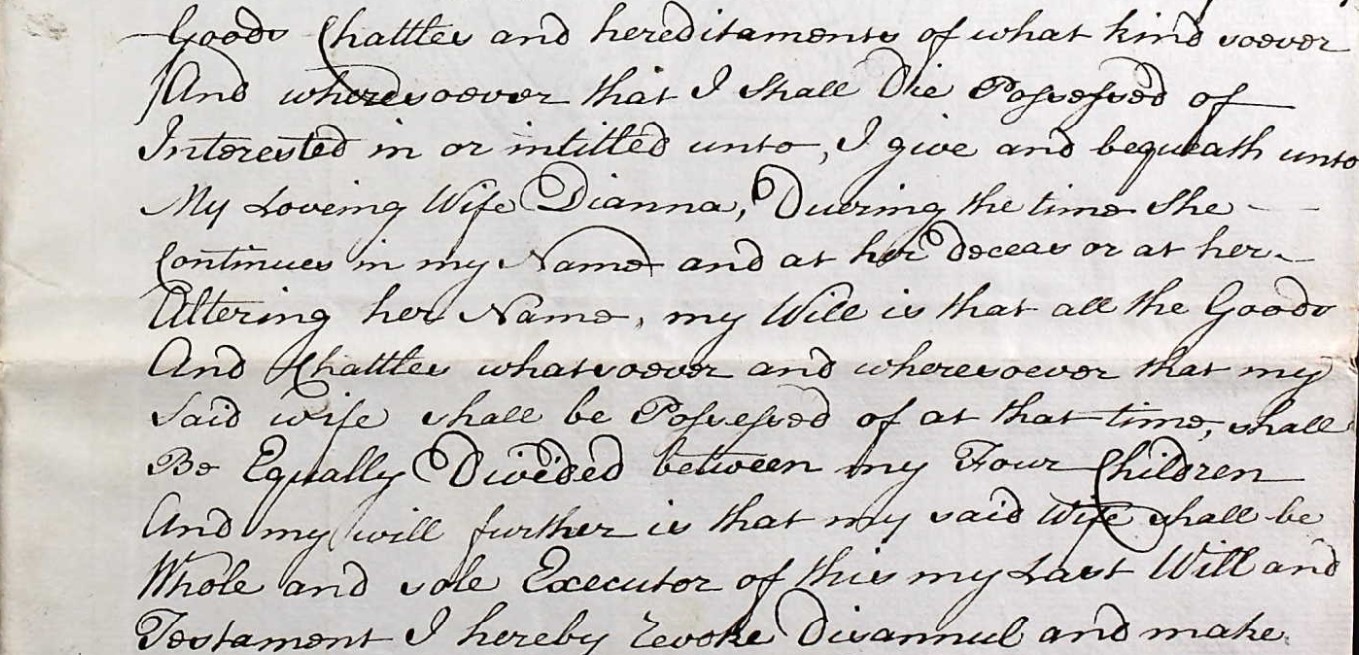 Goods Chattles and hereditaments of what kind soever
And wheresoever that I Shall Die Possessed of
Interested in or intitled unto, I give and bequeath unto
My Loveing Wife Dianna, During the time She
Continues in my Name and at her deceas or at her
Altering her Name, my Will is that all the Goods
And Chattles whatsoever and wheresoever that my
Said wife shall be Possessed of at that time, shall
Be Equally Divided between my Four Children
And my will further is that my said Wife shall be
Whole and sole Executor of this my Last Will and
Testament I hereby revoke Disannul and make